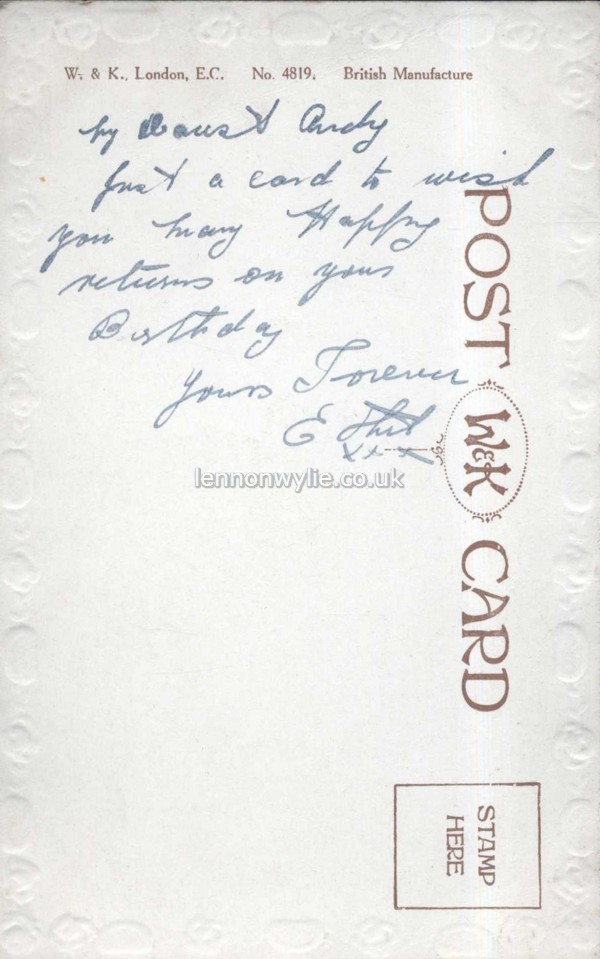 W. & K., London, E.C. No. 4819. British Manufacture
My Dearest Andy
Just a card to wish
you many Happy
returns on your
Birthday
Yours Forever
Ethel
x x x
lennonwylie.co.uk
POST
W&K
CARD
STAMP
HERE